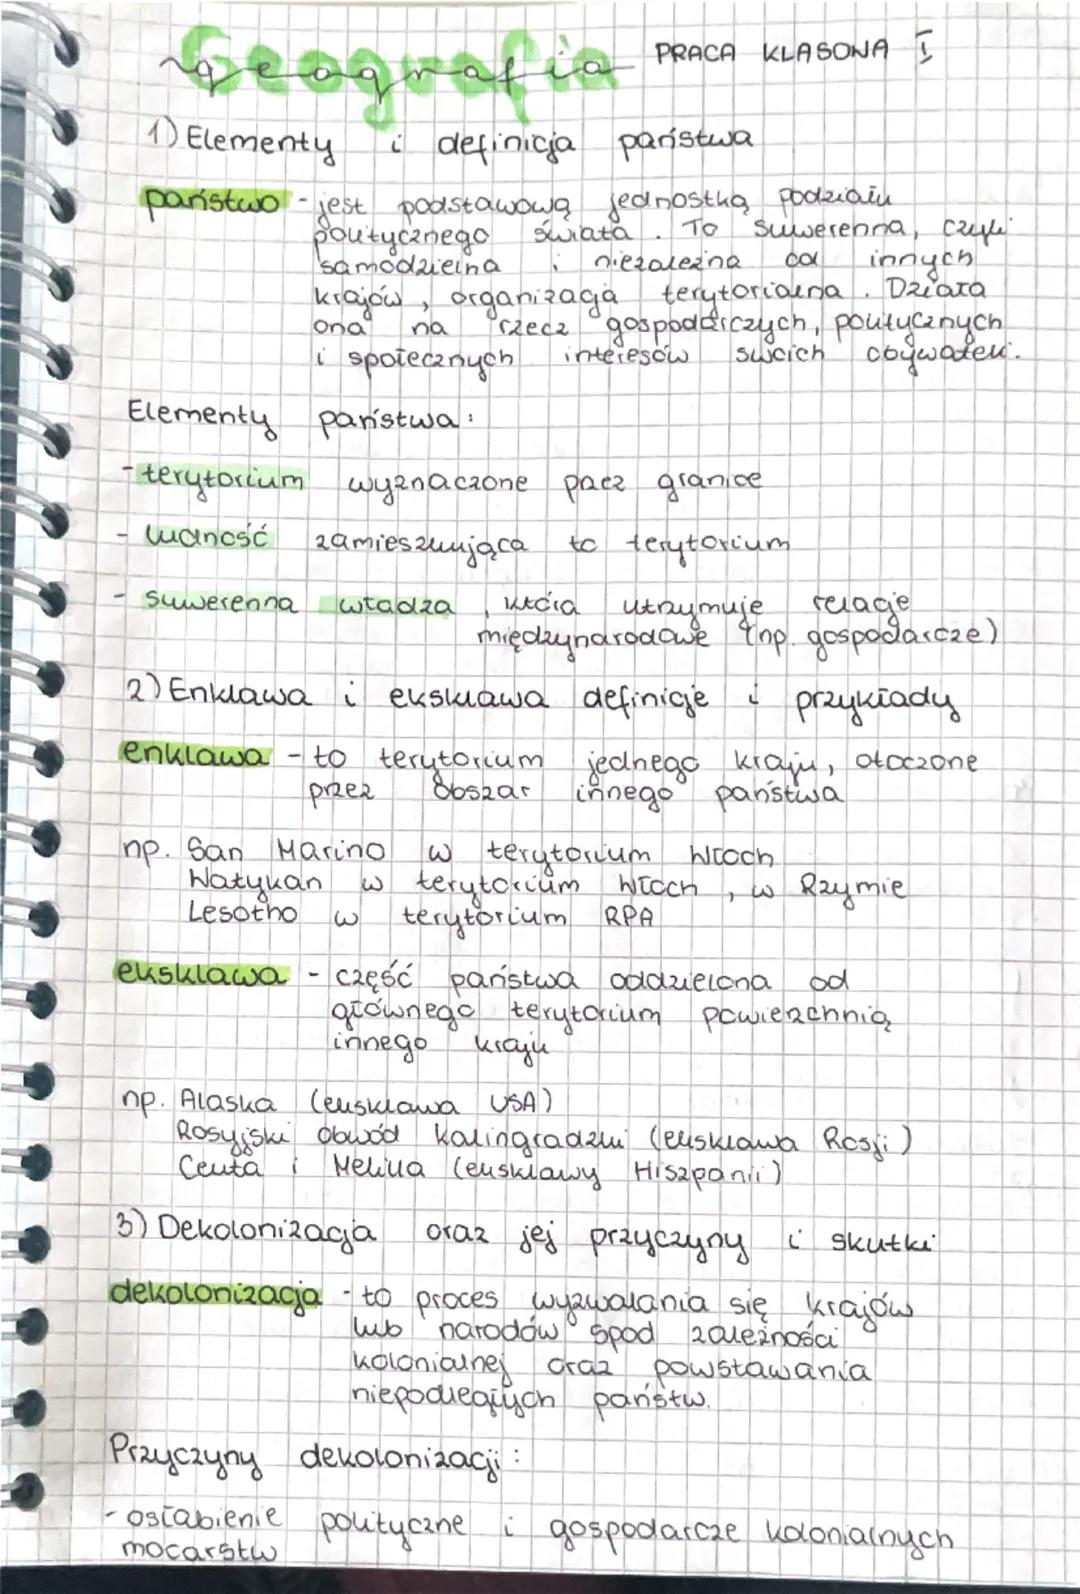 Geografia PRACA KLASOWA I
1) Elementy i definicja państwa
państwo - jest podstawową jednostką podziału
politycznego świata. To suwerenna, czyli
samodzielna i niezależna od innych
krajów, organizacja terytorialna. Działa
ona na rzecz gospodarczych, politycznych
i społecznych interesów swoich obywateli.
Elementy państwa:
- terytorium wyznaczone pacz granice
- ludność zamieszkująca to terytorium
- suwerenna władza, która utrzymuje relacje
międzynarodowe (np. gospodarcze)
2) Enklawa i eksklawa definicje i przykłady
enklawa - to terytorium jednego kraju, otoczone
przez obszar innego państwa
np. San Marino w terytorium Włoch
Watykan w terytorium Włoch, w Rzymie
Lesotho w terytorium RPA
eksklawa - część państwa oddzielona od
głównego terytorium powierzchnią
innego kraju
np. Alaska (eksklawa USA)
Rosyjski obwód kalingradzki (eksklawa Rosji)
Ceuta i Melilla (eksklawy Hiszpanii)
3) Dekolonizacja oraz jej przyczyny i skutki
dekolonizacja - to proces wyzwalania się krajów
lub narodów spod zależności
kolonialnej oraz powstawania
niepodległych państw.
Przyczyny dekolonizacji:
- osłabienie polityczne i gospodarcze kolonialnych
mocarstw